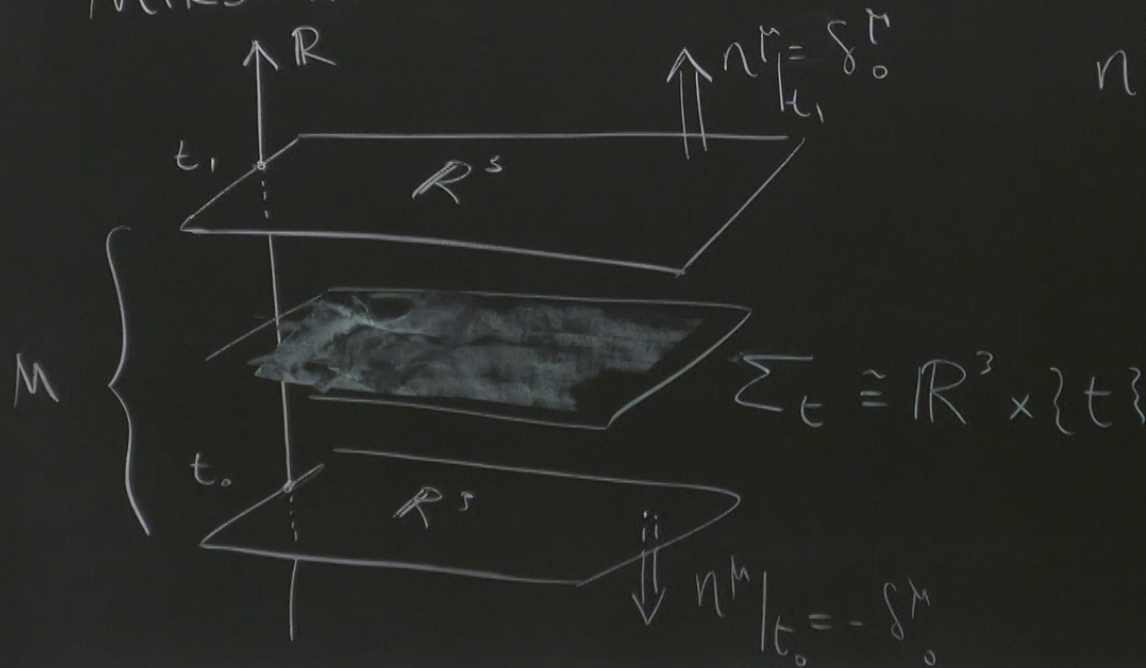 ℝ
n^μ|_{t_1} = δ^μ_0
n
t_1
ℝ^3
M
Σ_t ≅ ℝ^3 × {t}
t_0
ℝ^3
n^μ|_{t_0} = -δ^μ_0